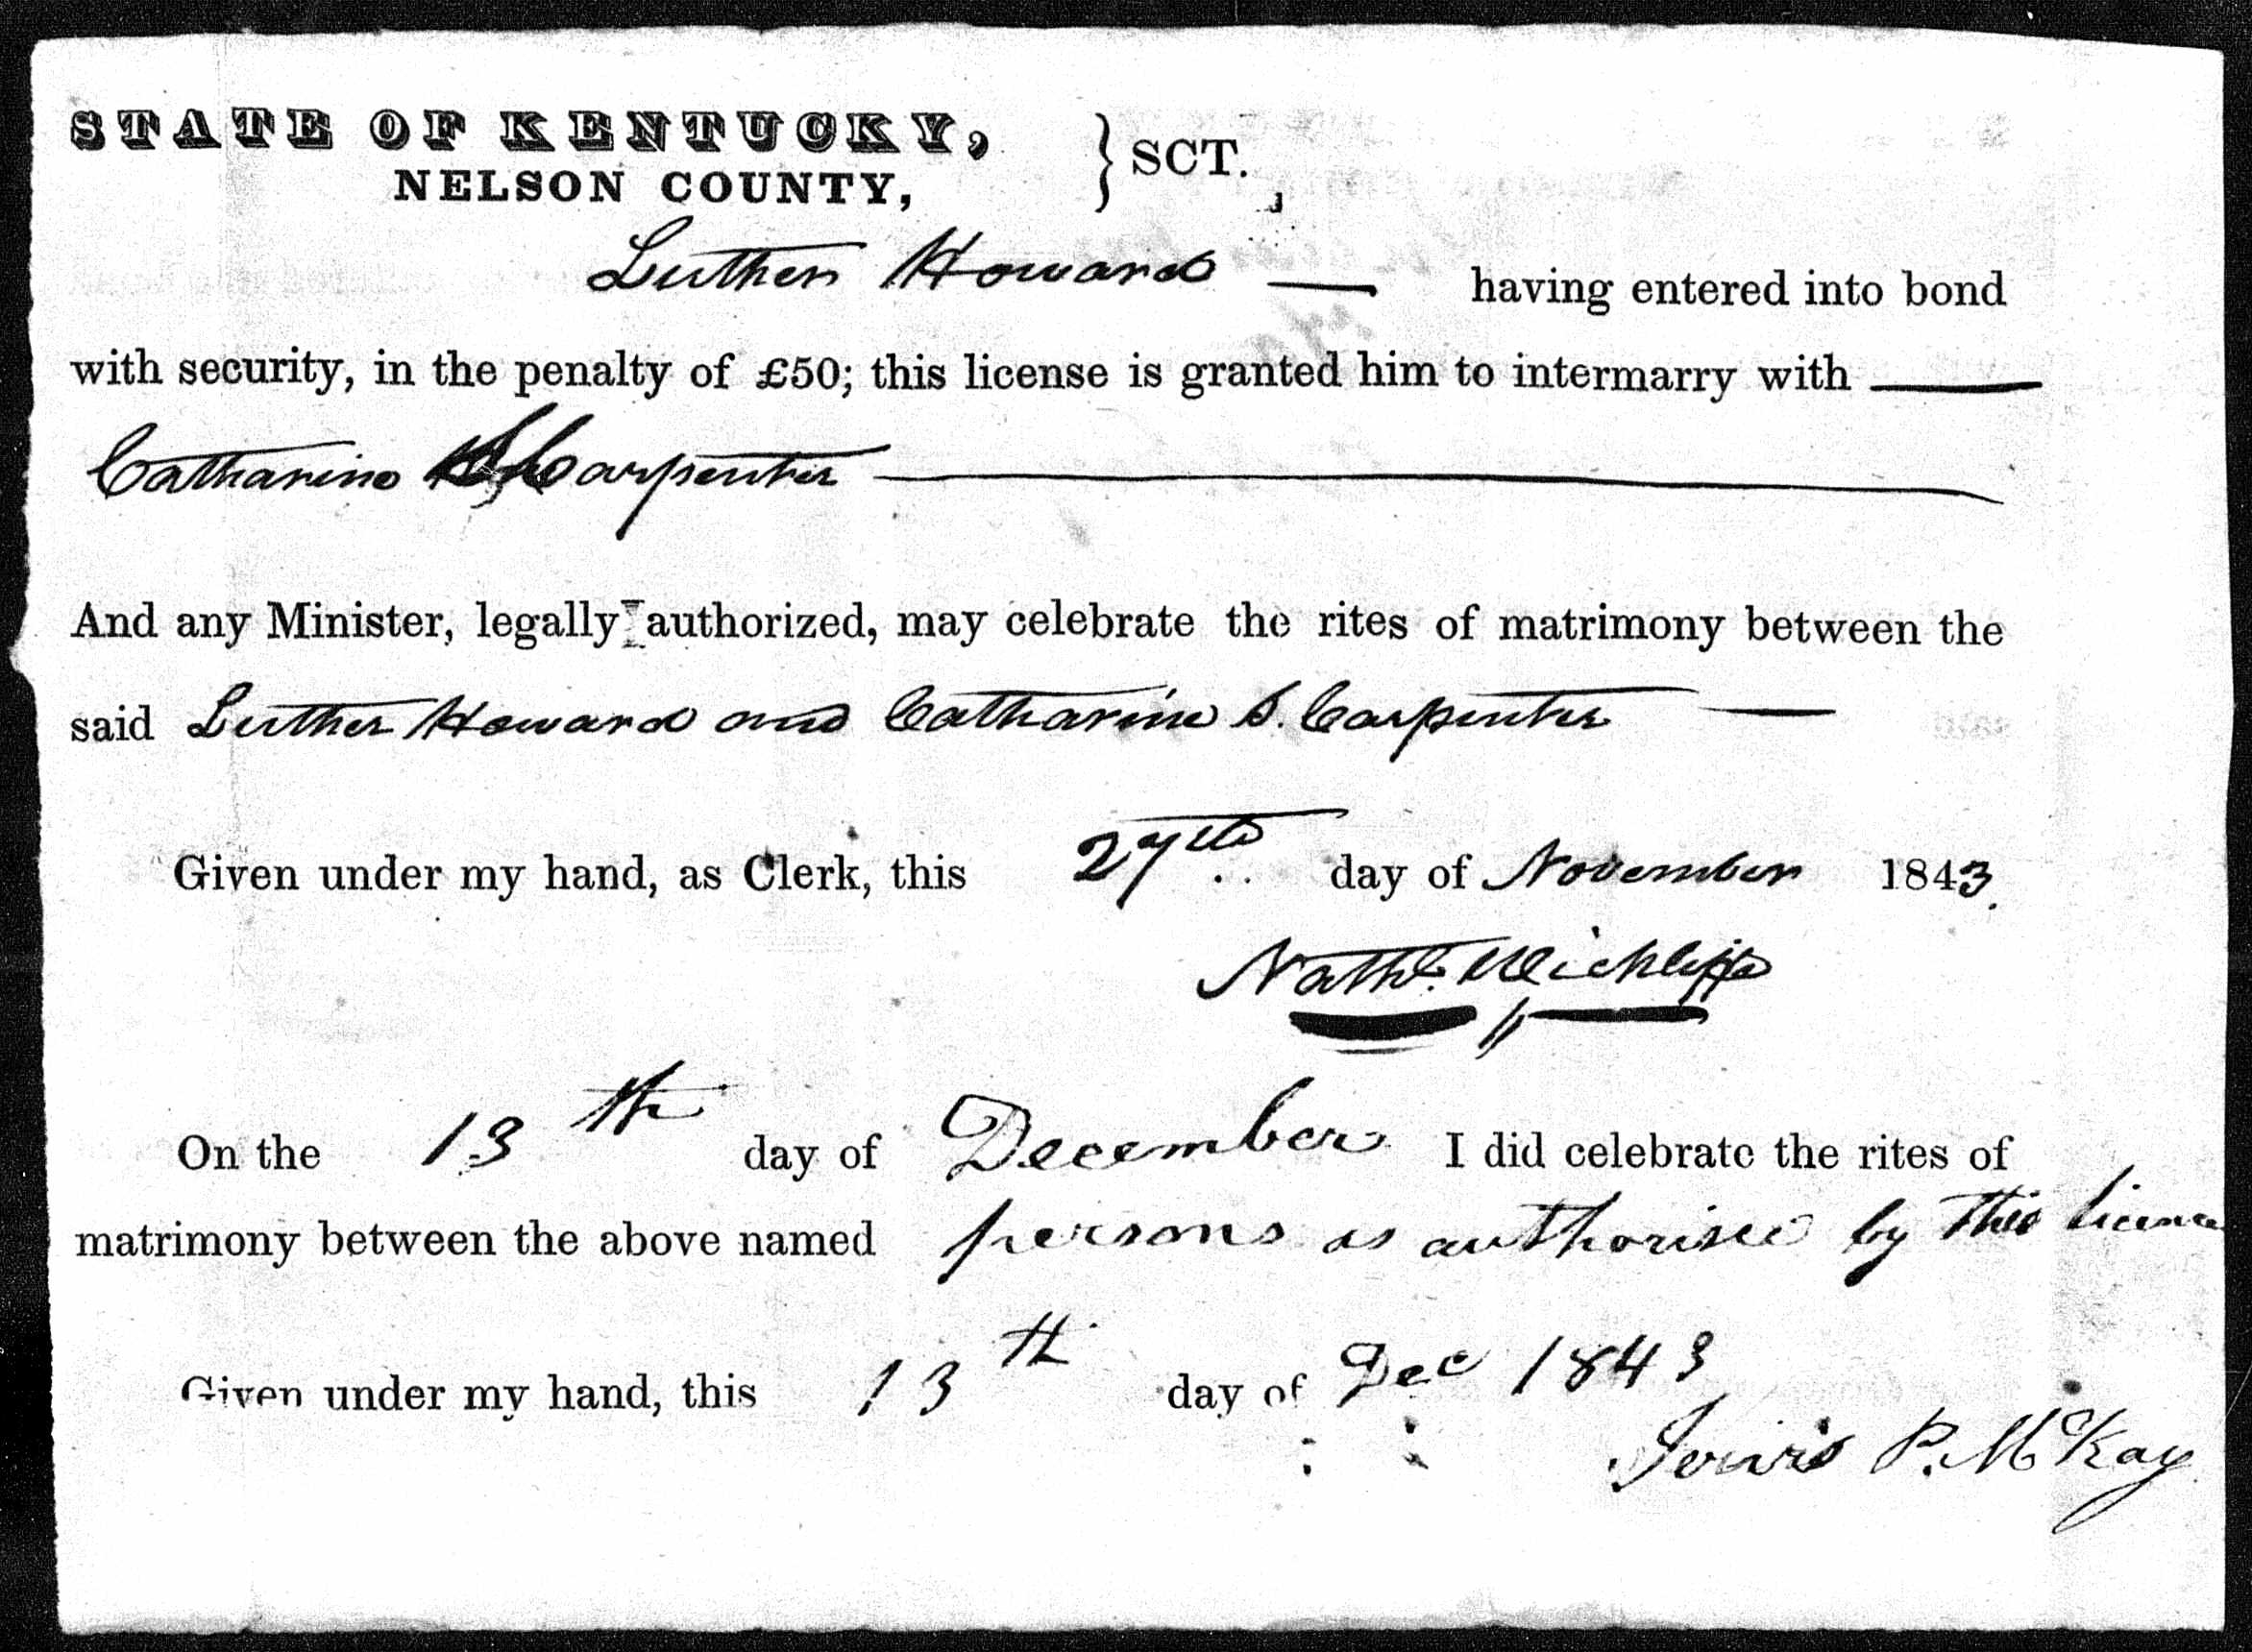 STATE OF KENTUCKY,
NELSON COUNTY, } SCT.
Luther Howard — having entered into bond
with security, in the penalty of £50; this license is granted him to intermarry with —
Catharine S. Carpenter —
And any Minister, legally authorized, may celebrate the rites of matrimony between the
said Luther Howard and Catharine S. Carpenter —
Given under my hand, as Clerk, this 27th day of November 1843.
Nathl. Wickliffe
On the 13th day of December I did celebrate the rites of
matrimony between the above named persons as authorised by this licence
Given under my hand, this 13th day of Dec 1843
P. McKay